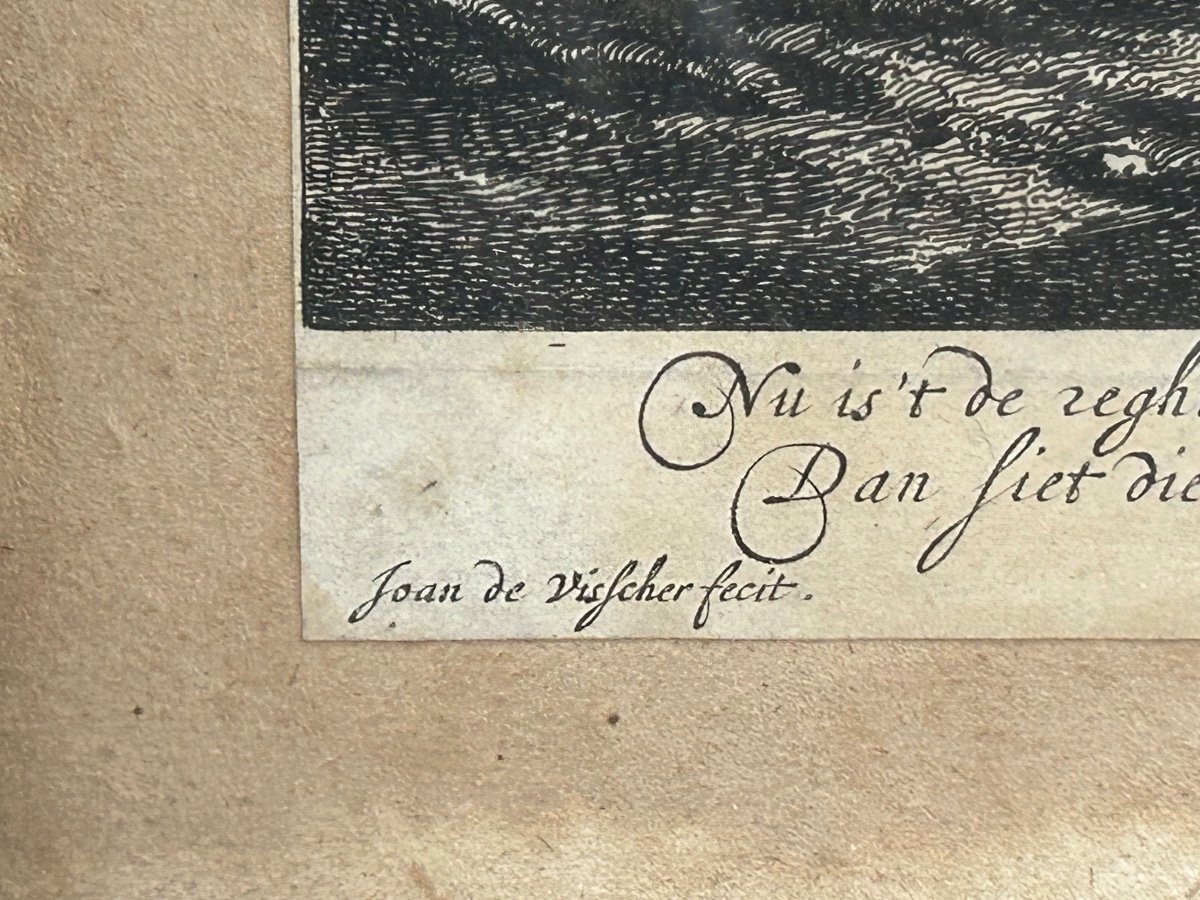 Nu is't de regh
Dan siet die
Joan de Visscher fecit.